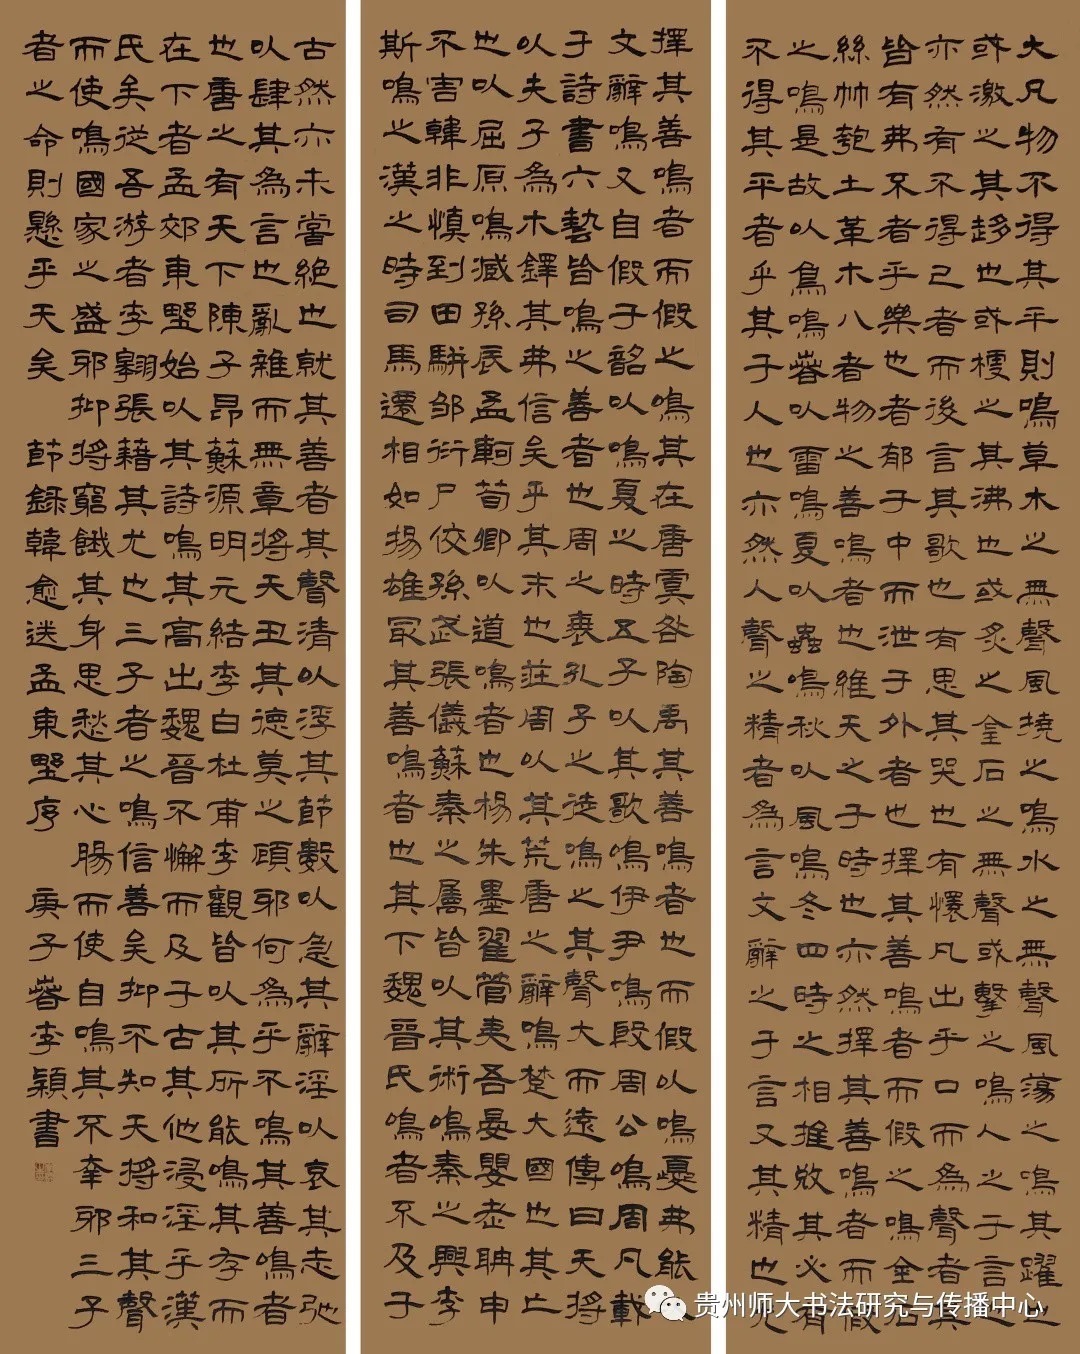 大凡物不得其平則鳴草木之無聲風撓之鳴水之無聲風蕩之鳴其躍也
或激之其趍也或梗之其沸也或炙之金石之無聲或擊之鳴人之于言也
亦然有不得已者而後言其歌也有思其哭也有懷凡出乎口而為聲者其
皆有弗平者乎樂也者郁于中而泄于外者也擇其善鳴者而假之鳴金石
絲竹匏土革木八者物之善鳴者也維天之于時也亦然擇其善鳴者而假
之鳴是故以鳥鳴春以雷鳴夏以蟲鳴秋以風鳴冬四時之相推敚其必有
不得其平者乎其于人也亦然人聲之精者為言文辭之于言又其精也尤
擇其善鳴者而假之鳴其在唐虞咎陶禹其善鳴者也而假以鳴夔弗能以
文辭鳴又自假于韶以鳴夏之時五子以其歌鳴伊尹鳴殷周公鳴周凡載
于詩書六藝皆鳴之善者也周之衰孔子之徒鳴之其聲大而遠傳曰天將
以夫子為木鐸其弗信矣乎其末也莊周以其荒唐之辭鳴楚大國也其亡
也以屈原鳴臧孫辰孟軻荀卿以道鳴者也楊朱墨翟管夷吾晏嬰老聃申
不害韓非慎到田駢邹衍尸佼孫武張儀蘇秦之屬皆以其術鳴秦之興李
斯鳴之漢之時司馬遷相如揚雄最其善鳴者也其下魏晉氏鳴者不及于
古然亦未嘗絕也就其善者其聲清以浮其節數以急其辭淫以哀其志弛
以肆其為言也亂雜而無章將天丑其德莫之顧邪何為乎不鳴其善鳴者
也唐之有天下陳子昂蘇源明元結李白杜甫李觀皆以其所能鳴其存而
在下者孟郊東野始以其詩鳴其高出魏晉不懈而及于古其他浸淫乎漢
氏矣從吾游者李翱張籍其尤也三子者之鳴信善矣抑不知天將和其聲
而使鳴國家之盛邪抑將窮餓其身思愁其心腸而使自鳴其不幸邪三子
者之命則懸乎天矣 節錄韓愈送孟東野序 庚子春李穎書
贵州师大书法研究与传播中心